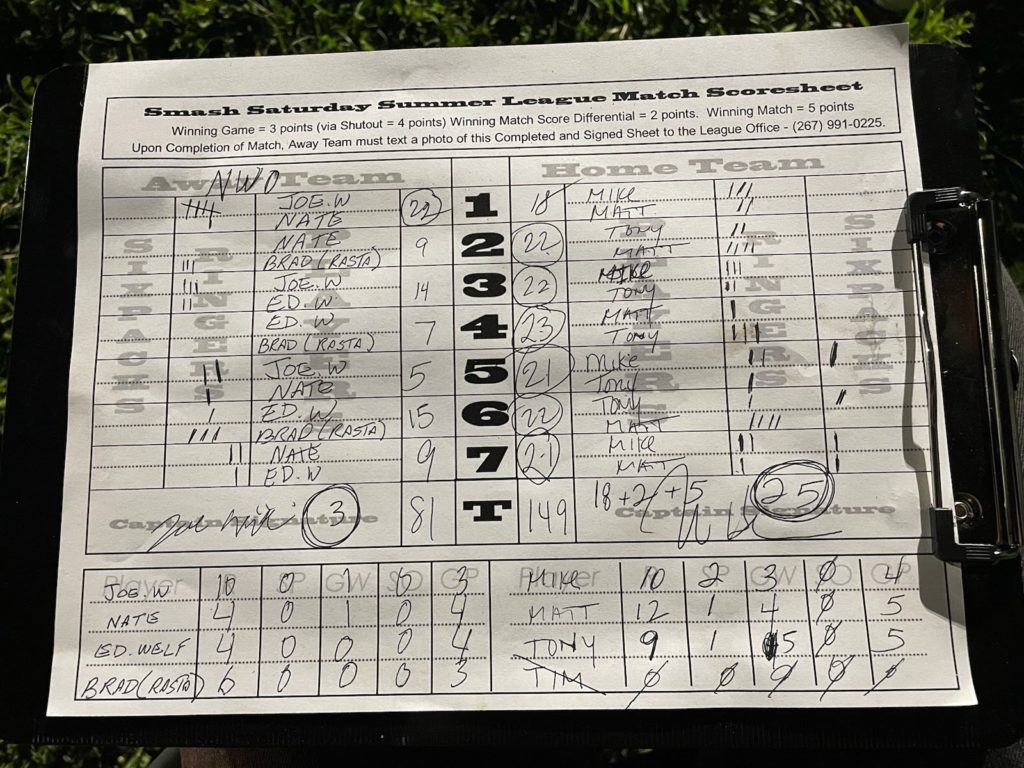 Smash Saturday Summer League Match Scoresheet
Winning Game = 3 points (via Shutout = 4 points) Winning Match Score Differential = 2 points. Winning Match = 5 points
Upon Completion of Match, Away Team must text a photo of this Completed and Signed Sheet to the League Office - (267) 991-0225.
Away Team NWO Home Team
JOE.W 22 1 18 MIKE
NATE MATT
NATE 9 2 22 TONY
BRAD (RASTA) MATT
JOE.W 14 3 22 MIKE
ED.W TONY
ED.W 7 4 23 MATT
BRAD (RASTA) TONY
JOE.W 5 5 21 Mike
NATE TONY
ED.W 15 6 22 TONY
BRAD (RASTA) MATT
NATE 9 7 21 MIKE
ED.W MATT
SIX PACES RINGERS PLAYERS PLAYERS RINGERS SIX PACES
Captain Signature 3 81 T 149 18+2+5 25 Captain Signature
Player P SP GW SO GP Player P SP GW SO GP
JOE.W 10 0 1 0 3 MIKE 10 2 3 0 4
NATE 4 0 1 0 4 MATT 12 1 4 0 5
ED.WELF 4 0 0 0 4 TONY 9 1 5 0 5
BRAD (RASTA) 6 0 0 0 3 TIM 0 0 0 0 0